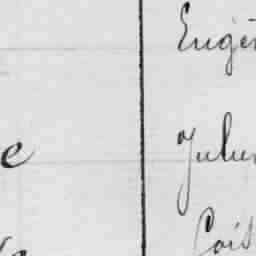 Eugèn
e
Julien
Cois